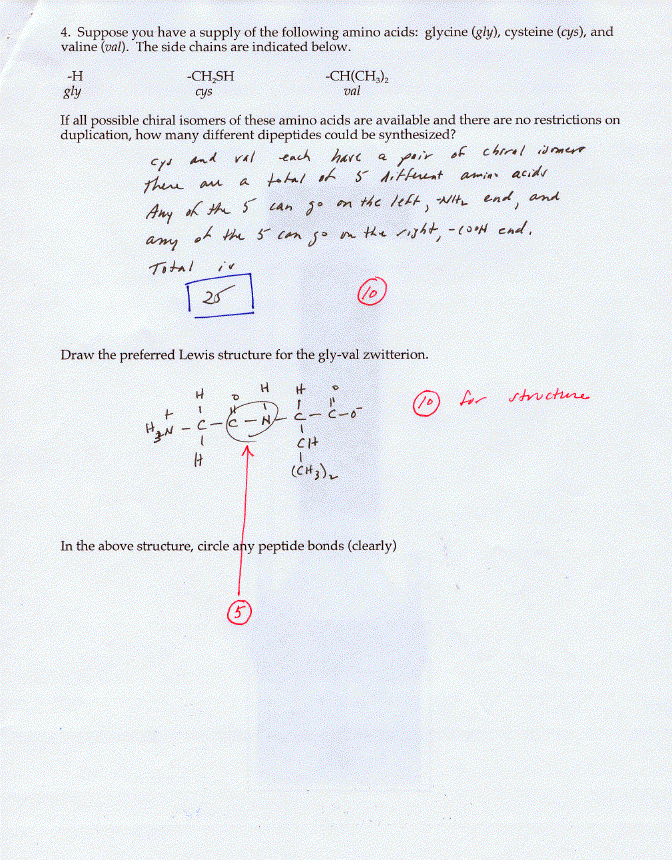 4. Suppose you have a supply of the following amino acids: glycine (gly), cysteine (cys), and
valine (val). The side chains are indicated below.
-H -CH₂SH -CH(CH₃)₂
gly cys val
If all possible chiral isomers of these amino acids are available and there are no restrictions on
duplication, how many different dipeptides could be synthesized?
cys and val each have a pair of chiral isomers
There are a total of 5 different amino acids
Any of the 5 can go on the left, -NH₂ end, and
any of the 5 can go on the right, -COOH end.
Total is
25 10
Draw the preferred Lewis structure for the gly-val zwitterion.
H O H H O
+
H₃N - C - C - N - C - C - O⁻
H CH
(CH₃)₂
10 for structure
In the above structure, circle any peptide bonds (clearly)
5